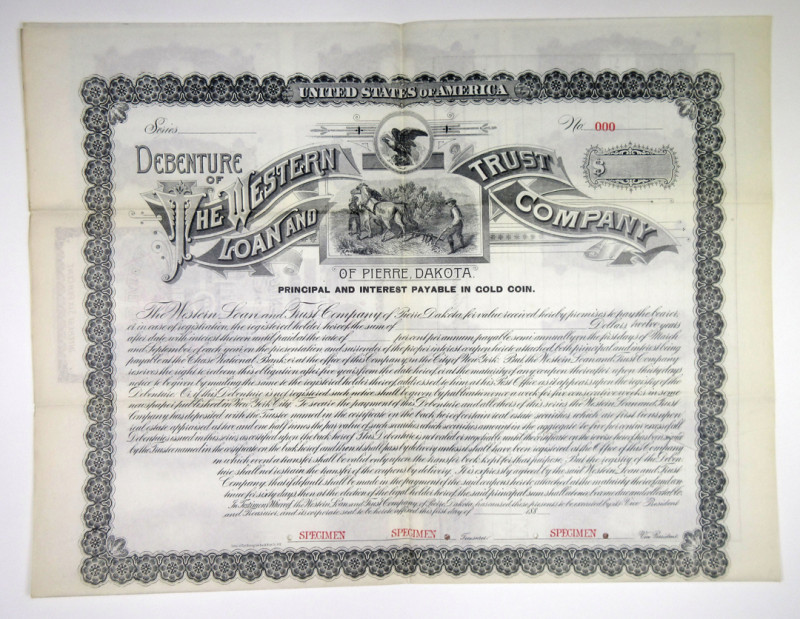 UNITED STATES OF AMERICA
Series
No. 000
DEBENTURE
OF
THE WESTERN
LOAN AND
TRUST
COMPANY
$
OF PIERRE, DAKOTA.
PRINCIPAL AND INTEREST PAYABLE IN GOLD COIN.
The Western Loan and Trust Company of Pierre Dakota for value received hereby promises to pay the bearer,
or in case of registration, the registered holder hereof the sum of Dollars twelve years
after date with interest thereon until paid at the rate of per cent per annum payable semi annually on the first days of March
and September of each year, on the presentation and surrender of the proper interest coupons hereto attached, both principal and interest being
payable at the Chase National Bank, or at the office of this Company in the City of New York. But the Western Loan and Trust Company
reserves the right to redeem this obligation after five years from the date hereof or at the maturity of any coupon thereafter upon thirty days
notice to be given by mailing the same to the registered holder thereof addressed to them at his Post Office as it appears upon the registry of the
Debenture. Or if this Debenture is unregistered such notice shall be given by publication once a week for four consecutive weeks in some
newspaper published in New York City. To secure the payment of this Debenture and all others of this series the Western Loan and Trust
Company has deposited with the Trustee named in the certificate on the back hereof certain real estate securities which are first liens upon
real estate appraised at two and one half times the
by the Trustee named in the certificate on the back hereof and then it shall pass by delivery unless it shall have been registered at the Office of this Company
in which event a transfer shall be valid only upon the transfer book kept for that purpose. But the registry of the Deben-
ture shall not restrain the transfer of the coupons by delivery. It is expressly agreed by the said Western Loan and Trust
Company, that if default shall be made in the payment of the said coupons hereto attached at the maturity thereof and con-
tinue for sixty days then at the election of the legal holder hereof the said principal sum shall at once become due and collectible.
In Testimony Whereof the Western Loan and Trust Company of Pierre, Dakota, has caused these presents to be executed by its Vice President
and Treasurer, and its corporate seal to be hereto affixed this first day of 188
SPECIMEN SPECIMEN Treasurer. SPECIMEN Vice President.